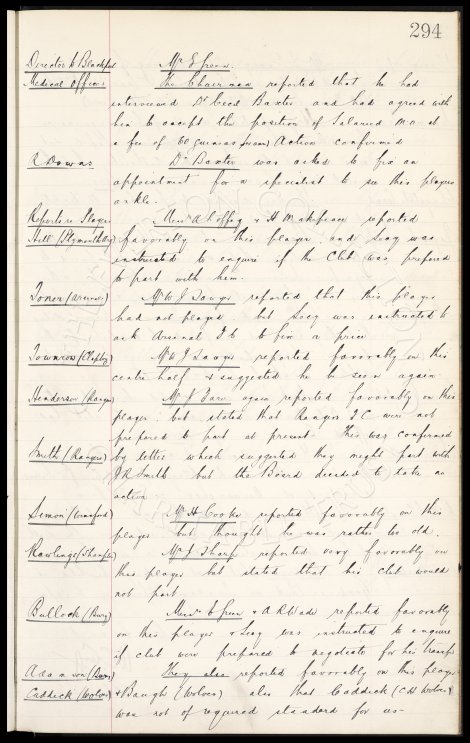 294
Director to Blackpool Mr E Green.
Medical Officer The Chairman reported that he had
interviewed Dr Cecil Baxter and had agreed with
him to accept the position of Salaried M.O. at
a fee of 60 guineas Action confirmed
R Downs Dr Baxter was asked to fix an
appointment for a specialist to see this players
ankle.
Reports re Players Messrs A Coffey & H Makepeace reported
Hill (Plymouth Arg) favorably on this player, and Secy was
instructed to enquire if the Club was prepared
to part with him.
Toner (Arsenal) Mr W J Sawyer reported that this player
had not played but Secy was instructed to
ask Arsenal F.C. to fix a price
Townrow (Clapton) Mr W J Sawyer reported favorably on this
centre half & suggested he be seen again.
Henderson (Rangers) Mr again reported favorably on this
player but stated that Rangers F C were not
prepared to part at present. This was confirmed
Smith (Rangers) by letter which suggested they might part with
J R Smith but the Board decided to take no
action
Simon Mr H Cooke reported favorably on this
player but thought he was rather too old.
Rawlings Mr J Sharp reported very favorably on
this player but stated that his club would
not part
Bullock (Bury) Messrs E Green & A R Wade reported favorably
on this player & Secy was instructed to enquire
if club were prepared to negotiate for his transfer
Adamson (Bury) They also reported favorably on this player
Caddick (Wolves) & Baugh (Wolves) also that Caddick (C H Wolves)
was not of required standard for us-